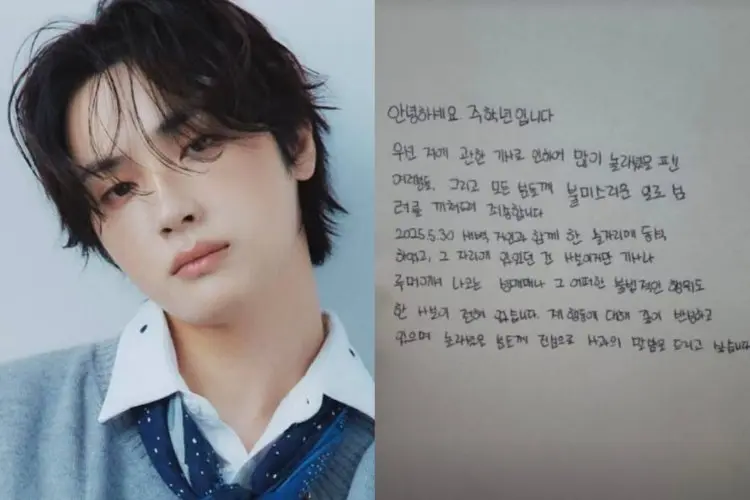 안녕하세요 주학년입니다
우선 저에 관한 기사로 인하여 많이 놀라셨을 팬
여러분들, 그리고 모든 분들께 불미스러운 일로 심
려를 끼쳐드려 죄송합니다
2025.5.30 새벽 지인과 함께 한 술자리에 동석
하였고, 그 자리에 있었던 건 사실이지만 기사나
루머에서 나오는 성매매나 그 어떠한 불법적인 행위도
한 사실이 전혀 없습니다. 제 행동에 대해 깊이 반성하고
있으며 놀라셨을 분들께 진심으로 사과의 말씀을 드리고 싶습니다